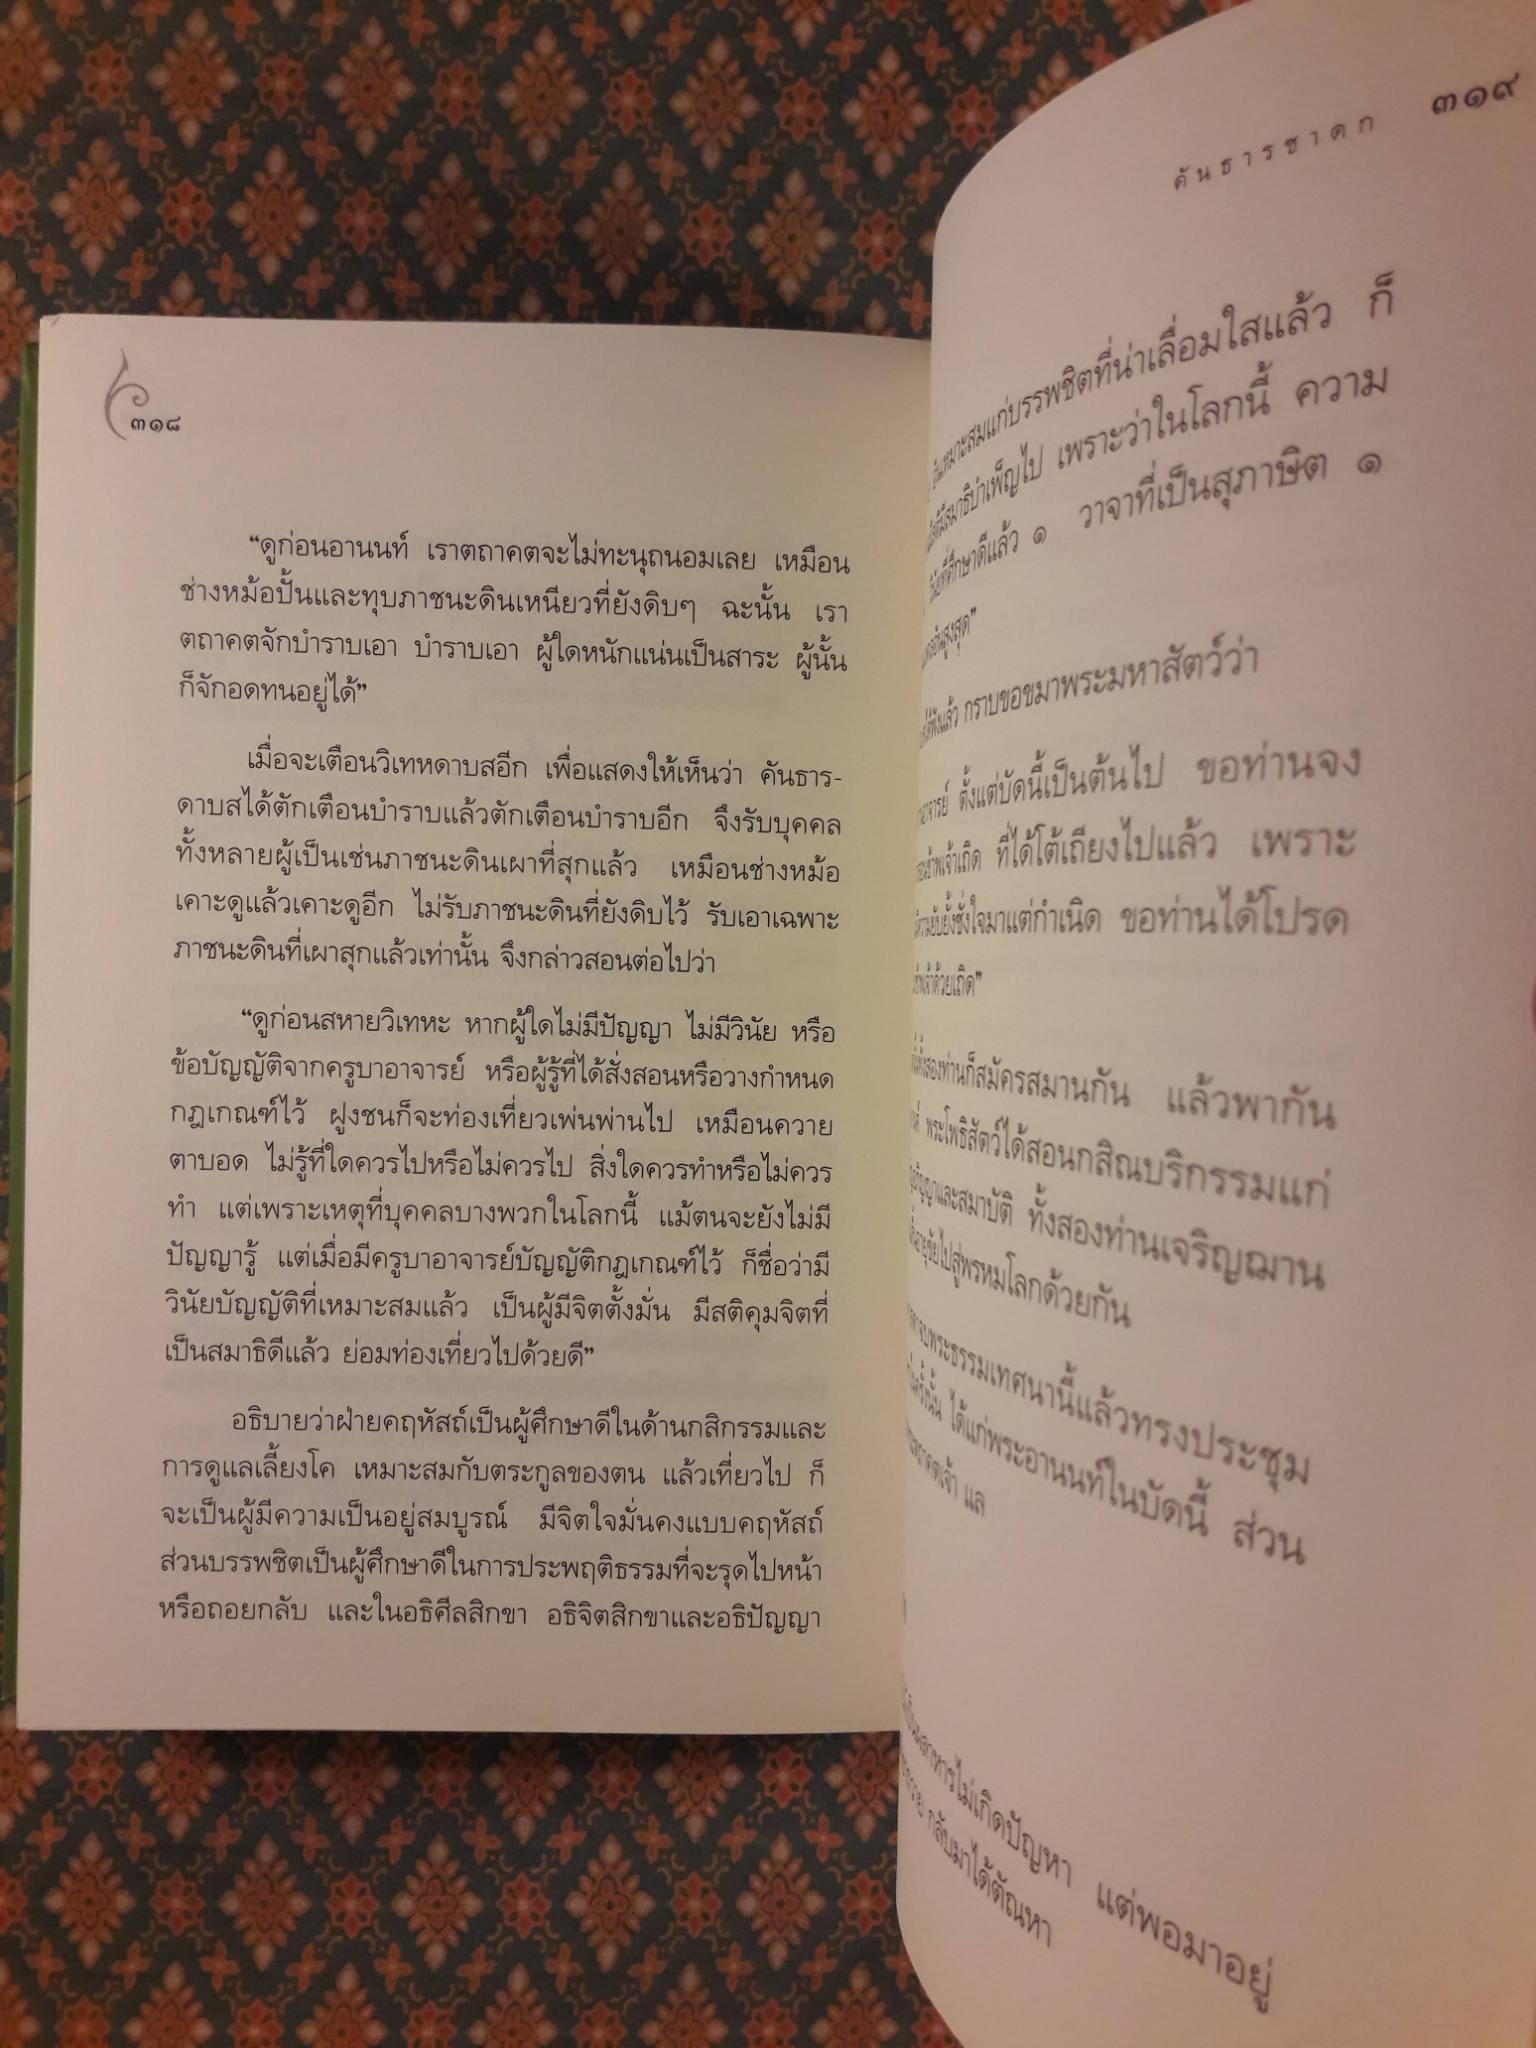 ๓๑๘
“ดูก่อนอานนท์ เราตถาคตจะไม่ทะนุถนอมเลย เหมือน
ช่างหม้อปั้นและทุบภาชนะดินเหนียวที่ยังดิบๆ ฉะนั้น เรา
ตถาคตจักบำราบเอา บำราบเอา ผู้ใดหนักแน่นเป็นสาระ ผู้นั้น
ก็จักอดทนอยู่ได้”
เมื่อจะเตือนวิเทหดาบสอีก เพื่อแสดงให้เห็นว่า คันธาร-
ดาบสได้ตักเตือนบำราบแล้วตักเตือนบำราบอีก จึงรับบุคคล
ทั้งหลายผู้เป็นเช่นภาชนะดินเผาที่สุกแล้ว เหมือนช่างหม้อ
เคาะดูแล้วเคาะดูอีก ไม่รับภาชนะดินที่ยังดิบไว้ รับเอาเฉพาะ
ภาชนะดินที่เผาสุกแล้วเท่านั้น จึงกล่าวสอนต่อไปว่า
“ดูก่อนสหายวิเทหะ หากผู้ใดไม่มีปัญญา ไม่มีวินัย หรือ
ข้อบัญญัติจากครูบาอาจารย์ หรือผู้รู้ที่ได้สั่งสอนหรือวางกำหนด
กฎเกณฑ์ไว้ ฝูงชนก็จะท่องเที่ยวเพ่นพ่านไป เหมือนควาย
ตาบอด ไม่รู้ที่ใดควรไปหรือไม่ควรไป สิ่งใดควรทำหรือไม่ควร
ทำ แต่เพราะเหตุที่บุคคลบางพวกในโลกนี้ แม้ตนจะยังไม่มี
ปัญญารู้ แต่เมื่อมีครูบาอาจารย์บัญญัติกฎเกณฑ์ไว้ ก็ชื่อว่ามี
วินัยบัญญัติที่เหมาะสมแล้ว เป็นผู้มีจิตตั้งมั่น มีสติคุมจิตที่
เป็นสมาธิดีแล้ว ย่อมท่องเที่ยวไปด้วยดี”
อธิบายว่าฝ่ายคฤหัสถ์เป็นผู้ศึกษาดีในด้านกสิกรรมและ
การดูแลเลี้ยงโค เหมาะสมกับตระกูลของตน แล้วเที่ยวไป ก็
จะเป็นผู้มีความเป็นอยู่สมบูรณ์ มีจิตใจมั่นคงแบบคฤหัสถ์
ส่วนบรรพชิตเป็นผู้ศึกษาดีในการประพฤติธรรมที่จะรุดไปหน้า
หรือถอยกลับ และในอธิศีลสิกขา อธิจิตสิกขาและอธิปัญญา
คันธารชาดก ๓๑๙
อันเหมาะสมแก่บรรพชิตที่น่าเลื่อมใสแล้ว ก็
บำเพ็ญไป เพราะว่าในโลกนี้ ความ
ที่ศึกษาดีแล้ว ๑ วาจาที่เป็นสุภาษิต ๑
อันสูงสุด”
กราบขอขมาพระมหาสัตว์ว่า
ตั้งแต่บัดนี้เป็นต้นไป ขอท่านจง
ที่ได้โต้เถียงไปแล้ว เพราะ
ขอท่านได้โปรด
ด้วยเถิด”
ทั้งสองท่านก็สมัครสมานกัน แล้วพากัน
พระโพธิสัตว์ได้สอนกสิณบริกรรมแก่
และสมาบัติ ทั้งสองท่านเจริญฌาน
ไปสู่พรหมโลกด้วยกัน
พระธรรมเทศนานี้แล้วทรงประชุม
ได้แก่พระอานนท์ในบัดนี้ ส่วน
แล
ไม่เกิดปัญหา แต่พอมาอยู่
กลับมาได้ตัณหา